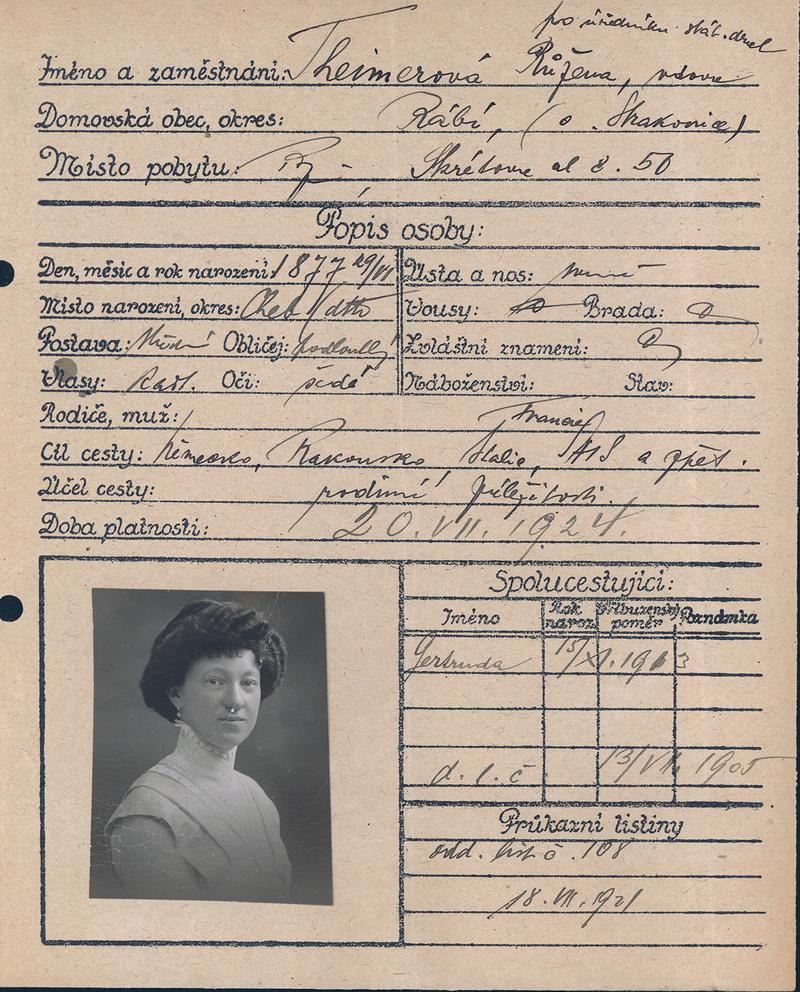 po úředníku stát. drah
Jméno a zaměstnání: Theimerová Růžena, vdova
Domovská obec, okres: Rábí, (o. Strakonice)
Místo pobytu: Skrétova ul č. 50
Popis osoby:
Den, měsíc a rok narození: 1877 29/VII
Ústa a nos:
Místo narození, okres: Cheb / dtto
Vousy: Brada: 0
Postava: střední Obličej: podlouhlý
Zvláštní znamení: 0
Vlasy: kašt. Oči: šedé
Náboženství: Stav:
Rodiče, muž:
Francie
Cíl cesty: Německo, Rakousko, Italie, a zpět.
Účel cesty: rodinné příležitosti.
Doba platnosti: 20. VII. 1924.
Spolucestující:
Jméno Rok naroz. Příbuzenský poměr Poznámka
Gertruda 15/XI. 1913
d. l. č 13/VII. 1905
Průkazní listiny
odd. list č. 108
18. VII. 1921